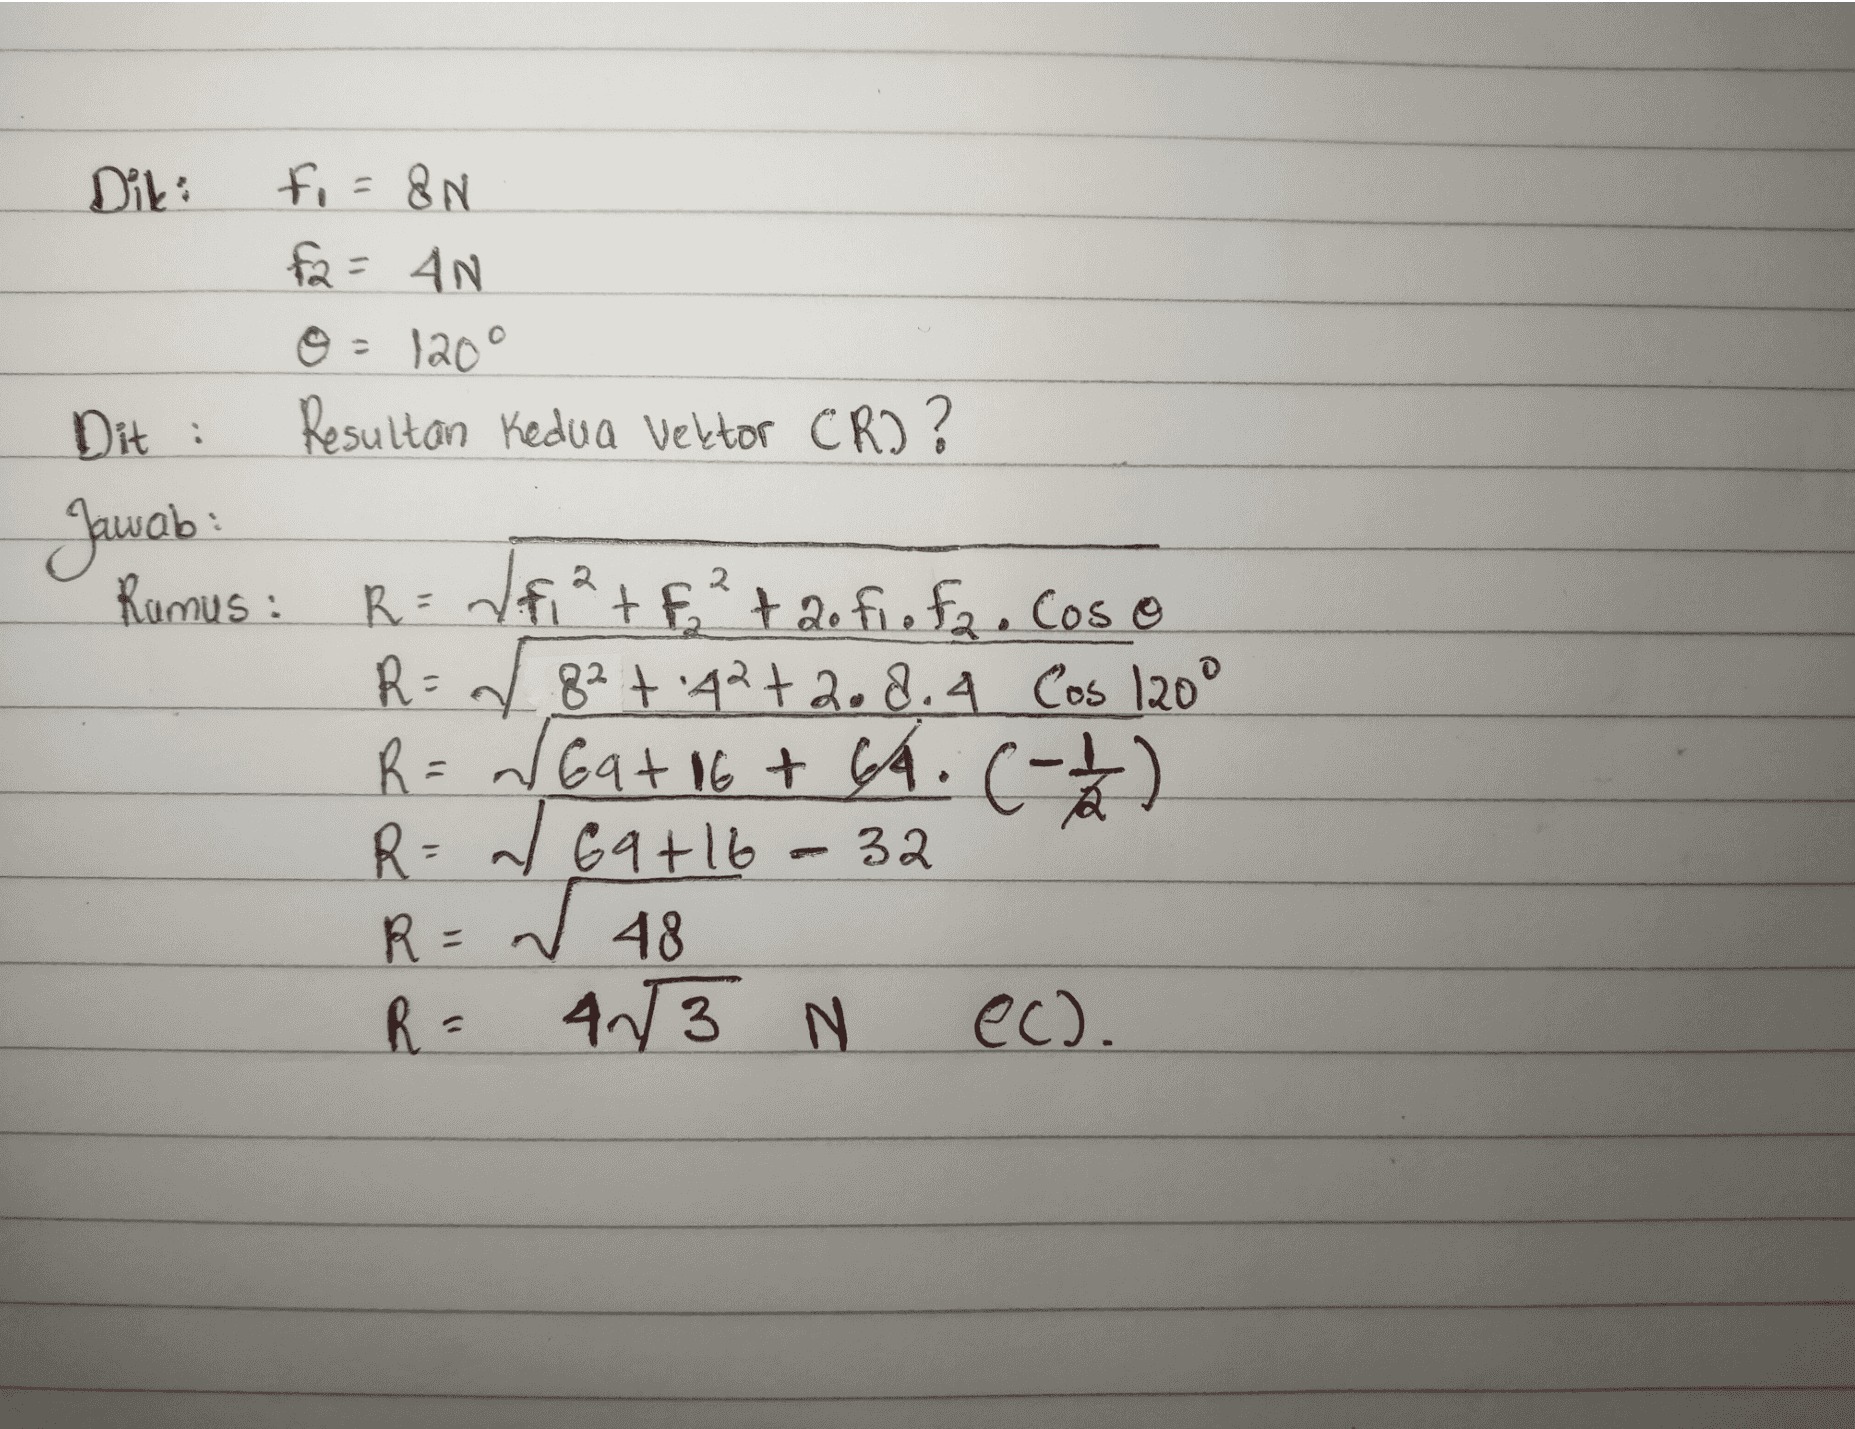 Dik: f₁ = 8N
f₂ = 4N
θ = 120°
Dit : Resultan Kedua Vektor (R)?
Jawab:
Rumus : R = √f₁² + F₂² + 2.f₁.f₂. Cos θ
R = √8² + 4² + 2.8.4 Cos 120°
R = √64 + 16 + 64. (-1/2)
R = √64+16 - 32
R = √48
R = 4√3 N (C).